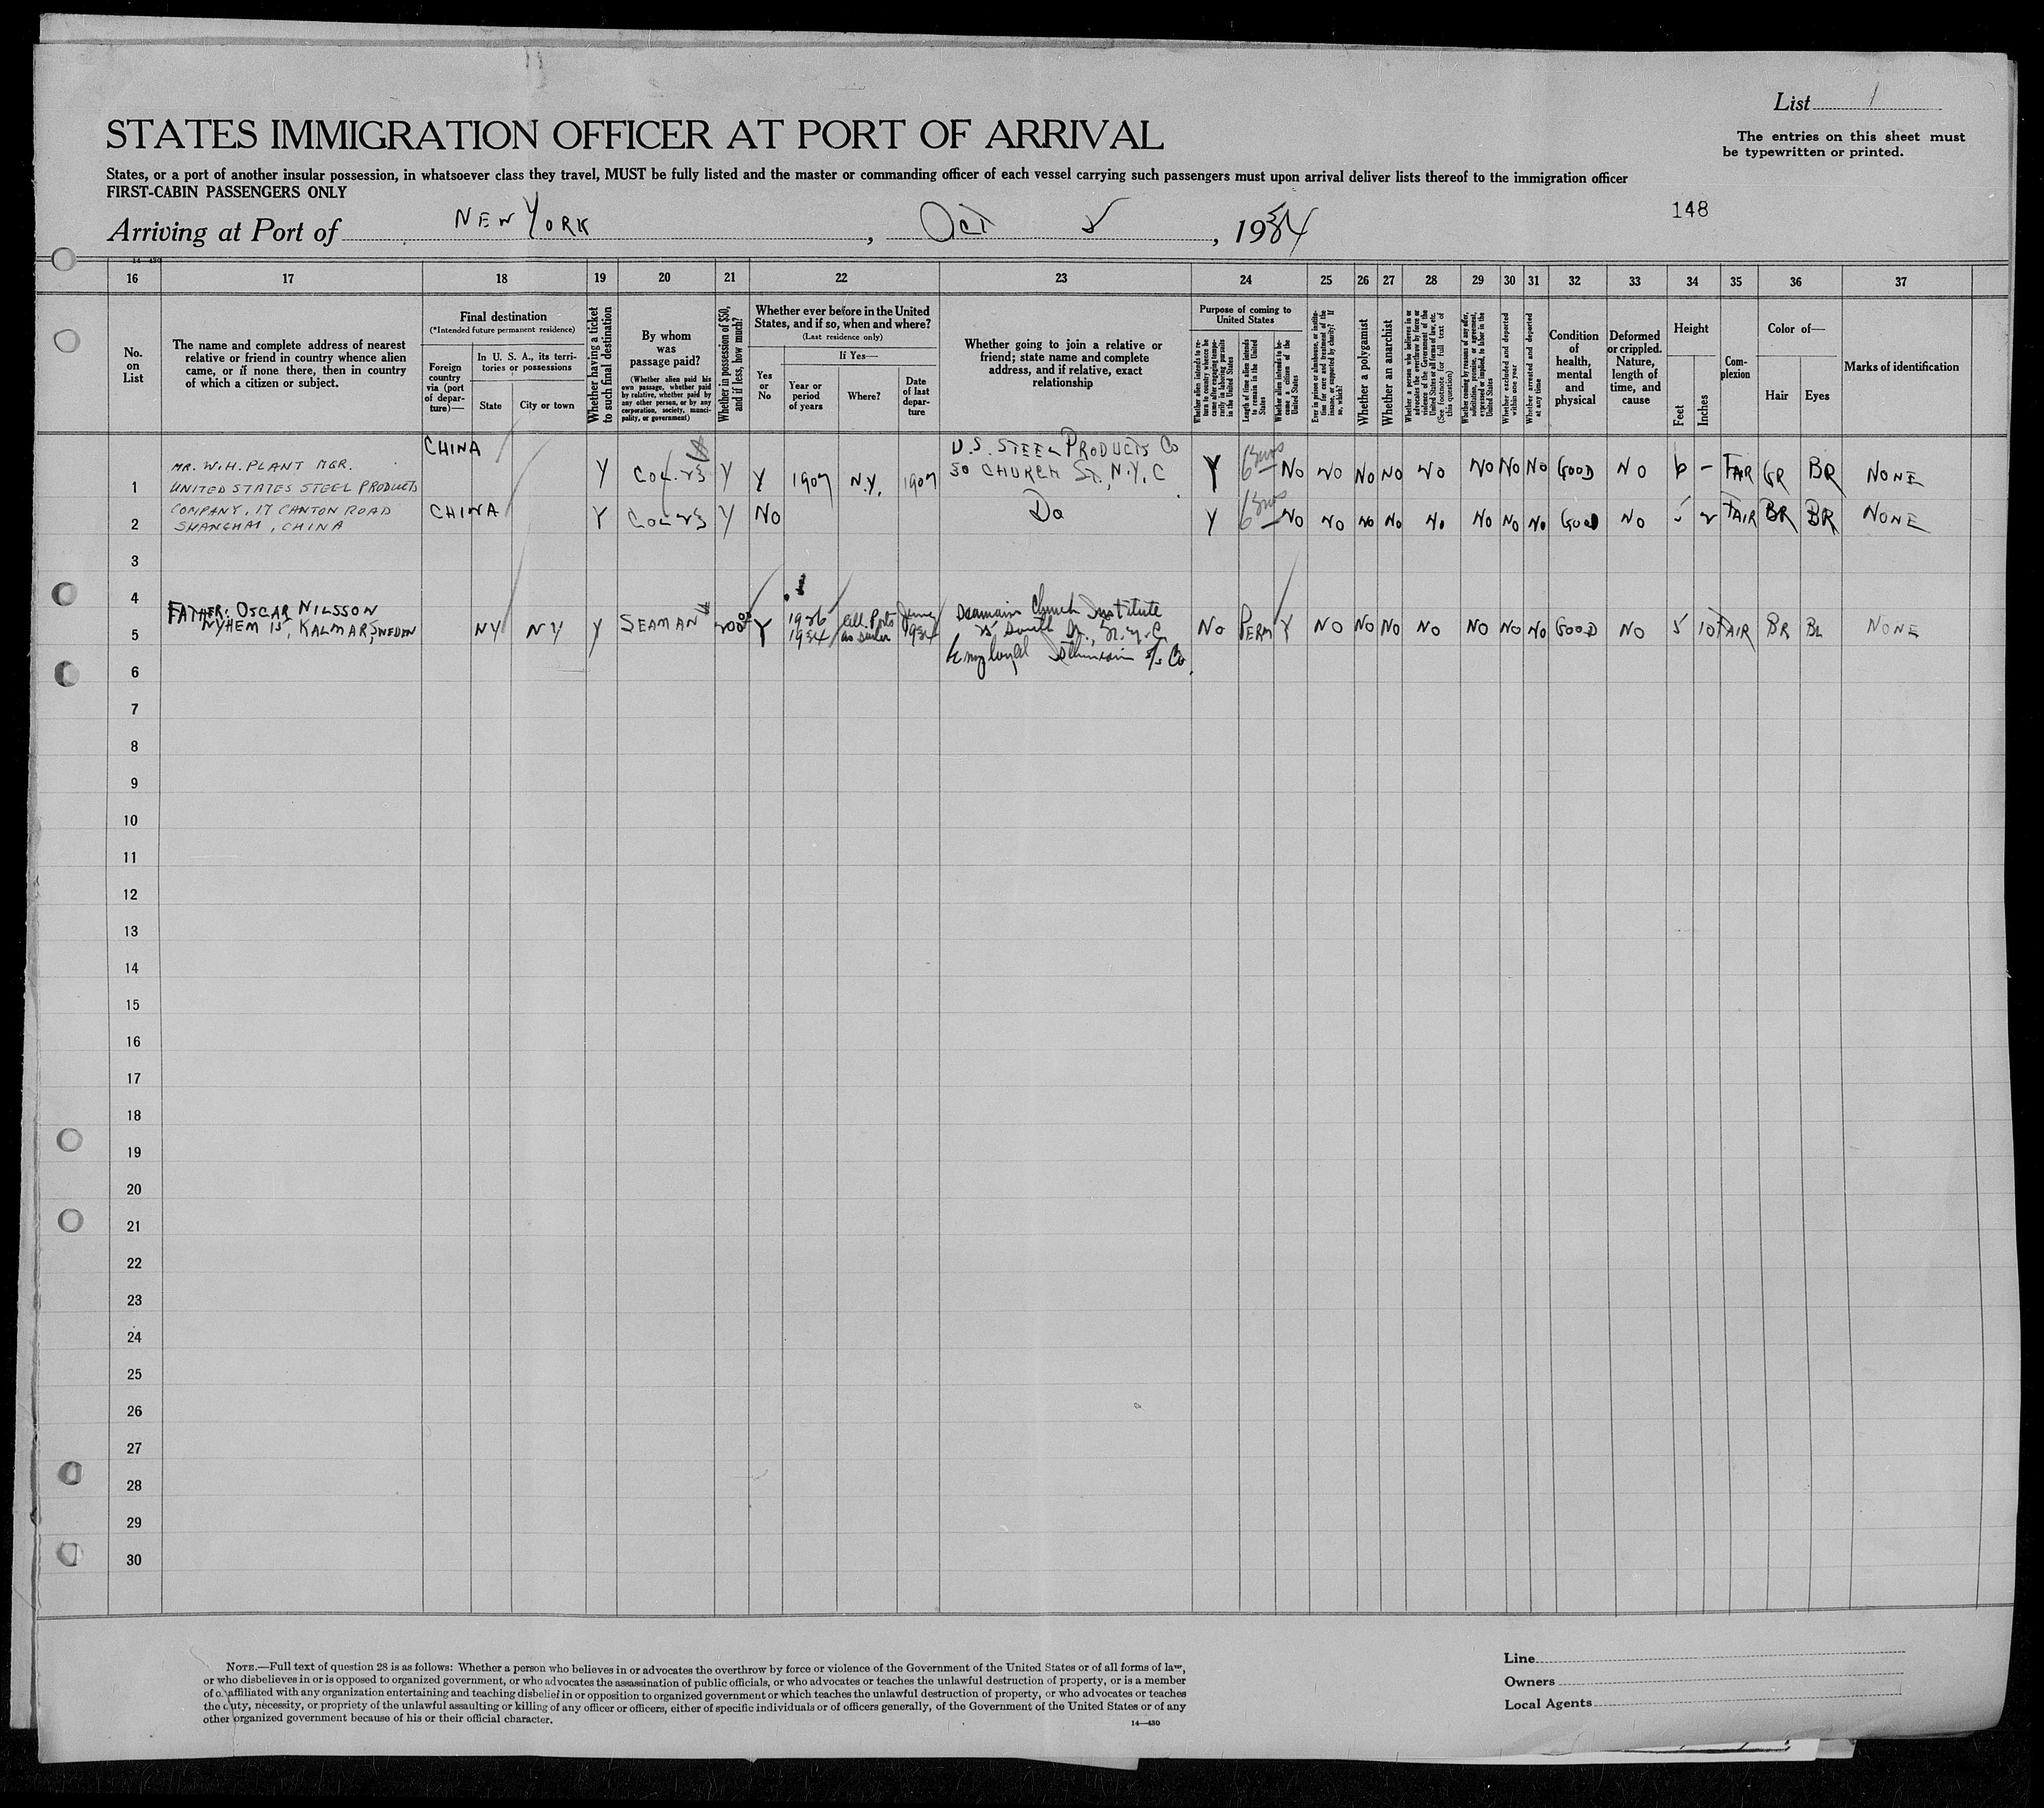 List 1
STATES IMMIGRATION OFFICER AT PORT OF ARRIVAL
The entries on this sheet must
be typewritten or printed.
States, or a port of another insular possession, in whatsoever class they travel, MUST be fully listed and the master or commanding officer of each vessel carrying such passengers must upon arrival deliver lists thereof to the immigration officer
FIRST-CABIN PASSENGERS ONLY
148
Arriving at Port of NEW YORK, Oct, 1934
16 17 18 19 20 21 22 23 24 25 26 27 28 29 30 31 32 33 34 35 36 37
No.
on
List
The name and complete address of nearest
relative or friend in country whence alien
came, or if none there, then in country
of which a citizen or subject.
Final destination
(*Intended future permanent residence)
Foreign
country
via (port
of depar-
ture)—
In U. S. A., its terri-
tories or possessions
State
City or town
Whether having a ticket
to such final destination
By whom
was
passage paid?
(Whether alien paid his
own passage, whether paid
by relative, whether paid by
any other person, or by any
corporation, society, munici-
pality, or government)
Whether in possession of $50,
and if less, how much?
Whether ever before in the United
States, and if so, when and where?
(Last residence only)
Yes
or
No
If Yes—
Year or
period
of years
Where?
Date
of last
depar-
ture
Whether going to join a relative or
friend; state name and complete
address, and if relative, exact
relationship
Purpose of coming to
United States
Whether alien intends to re-
turn to country whence he
came after engaging tempo-
rarily in laboring pursuits
in the United States
Length of time alien intends
to remain in the United
States
Whether alien intends to be-
come a citizen of the
United States
Ever in prison or almshouse, or institu-
tion for care and treatment of the
insane, or supported by charity? If
so, which?
Whether a polygamist
Whether an anarchist
Whether a person who believes in or
advocates the overthrow by force or
violence of the Government of the
United States or all forms of law, etc.
(See footnote for full text of
this question)
Whether coming by reasons of any offer,
solicitation, promise, or agreement,
expressed or implied, to labor in the
United States
Whether excluded and deported
within one year
Whether arrested and deported
at any time
Condition
of
health,
mental
and
physical
Deformed
or crippled.
Nature,
length of
time, and
cause
Height
Feet
Inches
Com-
plexion
Color of—
Hair
Eyes
Marks of identification
1 MR. W.H. PLANT MGR. CHINA Y Y Y 1907 N.Y. 1907 U.S. STEEL PRODUCTS Co Y 6 mos No NO NO NO NO NO NO NO GOOD NO 6 - FAIR GR BR NONE
UNITED STATES STEEL PRODUCTS 50 CHURCH ST., N.Y.C
2 COMPANY, 17 CANTON ROAD CHINA Y Y NO Do Y 6 mos NO NO NO NO NO NO NO NO GOOD NO 5 2 FAIR BR BR NONE
SHANGHAI, CHINA
3
4
FATHER: OSCAR NILSSON 1926 All Ports June Seamans Church Institute
5 NYHEM 15, KALMAR, SWEDEN NY NY Y SEAMAN Y 1934 as seaman 1934 25 South St., N.Y.C. NO PERM Y NO NO NO NO NO NO NO GOOD NO 5 10 FAIR BR BL NONE
6
7
8
9
10
11
12
13
14
15
16
17
18
19
20
21
22
23
24
25
26
27
28
29
30
NOTE.—Full text of question 28 is as follows: Whether a person who believes in or advocates the overthrow by force or violence of the Government of the United States or of all forms of law,
or who disbelieves in or is opposed to organized government, or who advocates the assassination of public officials, or who advocates or teaches the unlawful destruction of property, or is a member
of or affiliated with any organization entertaining and teaching disbelief in or opposition to organized government or which teaches the unlawful destruction of property, or who advocates or teaches
the duty, necessity, or propriety of the unlawful assaulting or killing of any officer or officers, either of specific individuals or of officers generally, of the Government of the United States or of any
other organized government because of his or their official character.
14—430
Line
Owners
Local Agents